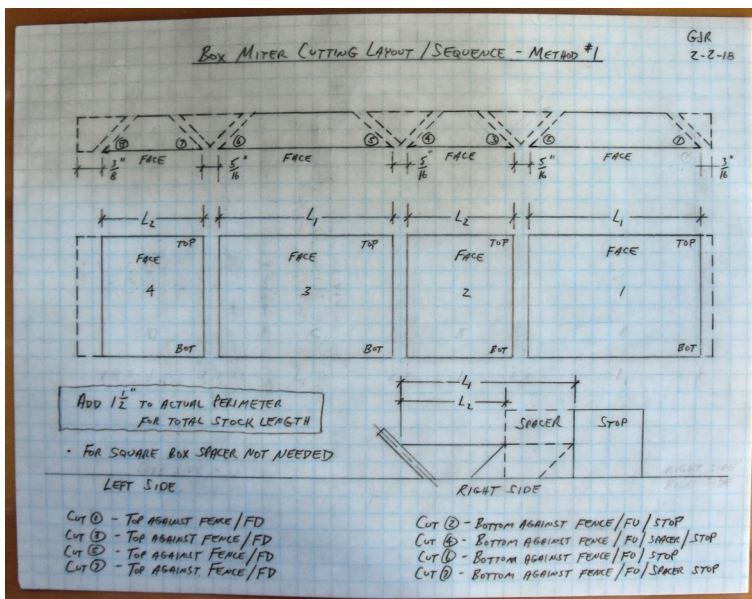 GJR
2-2-18
BOX MITER CUTTING LAYOUT / SEQUENCE - METHOD #1
8 7 6 5 4 3 2 1
FACE FACE FACE FACE
3/8" 5/16" 5/16" 5/16" 3/8"
L2 L1 L2 L1
TOP TOP TOP TOP
FACE FACE FACE FACE
4 3 2 1
BOT BOT BOT BOT
ADD 1 1/2" TO ACTUAL PERIMETER
FOR TOTAL STOCK LENGTH
• FOR SQUARE BOX SPACER NOT NEEDED
L1
L2
SPACER STOP
LEFT SIDE
CUT ① - TOP AGAINST FENCE/FD
CUT ③ - TOP AGAINST FENCE/FD
CUT ⑤ - TOP AGAINST FENCE/FD
CUT ⑦ - TOP AGAINST FENCE/FD
RIGHT SIDE
CUT ② - BOTTOM AGAINST FENCE/FU/STOP
CUT ④ - BOTTOM AGAINST FENCE/FU/SPACER/STOP
CUT ⑥ - BOTTOM AGAINST FENCE/FU/STOP
CUT - BOTTOM AGAINST FENCE/FU/SPACER STOP